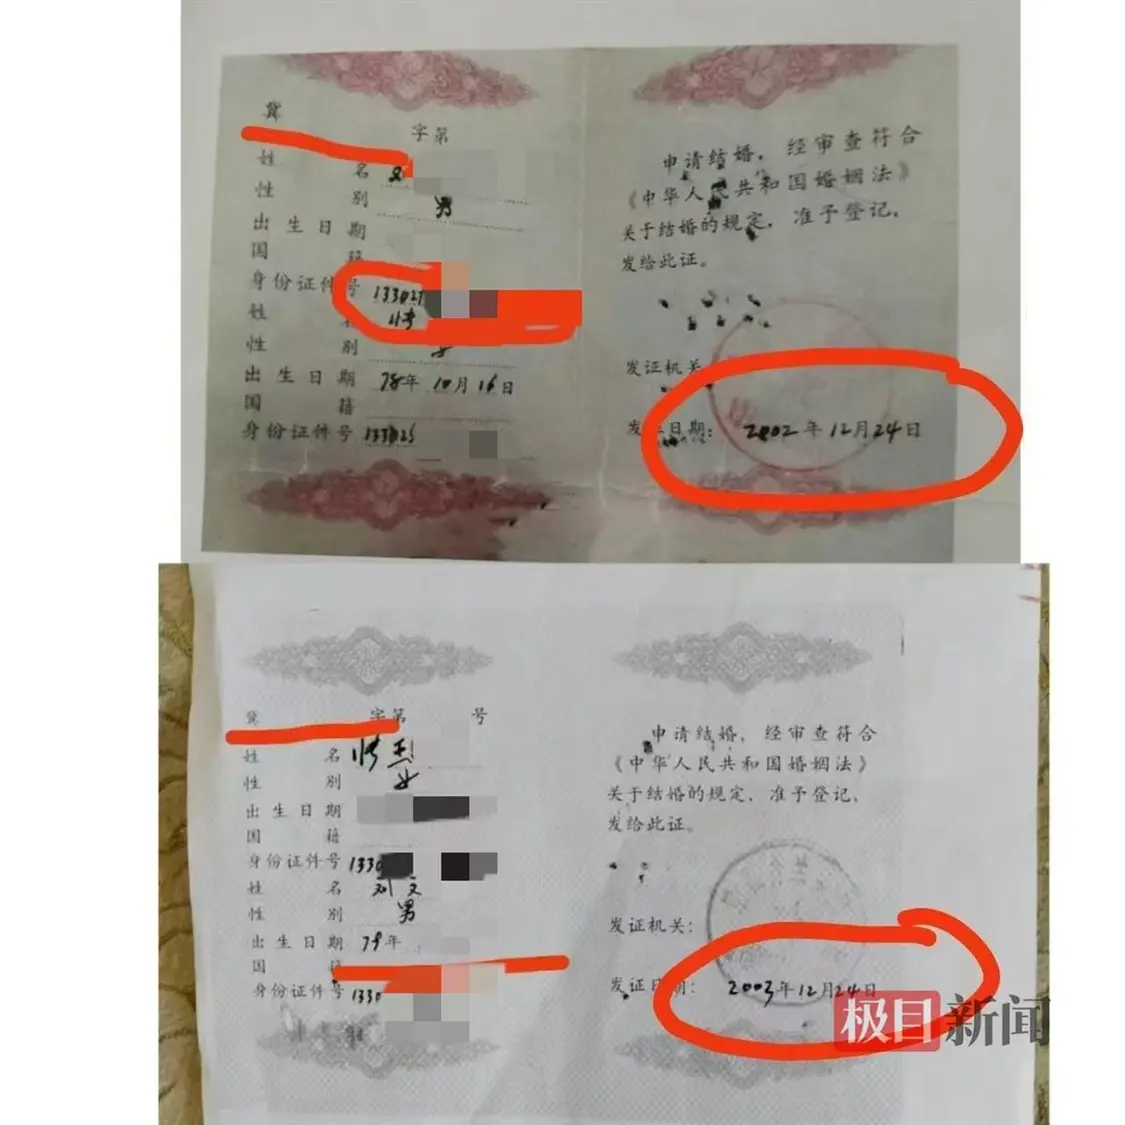 冀 字第
姓 名 刘
性 别 男
出生日期
国 籍
身份证件号 133027
姓
性 别 女
出生日期 78年10月16日
国 籍
身份证件号 133025
申请结婚，经审查符合
《中华人民共和国婚姻法》
关于结婚的规定，准予登记，
发给此证。
发证机关
发证日期：2002年12月24日
冀 字第 号
姓 名
性 别 女
出生日期
国 籍
身份证件号 1330
姓 名 刘文
性 别 男
出生日期 79年
国 籍
身份证件号 1330
申请结婚，经审查符合
《中华人民共和国婚姻法》
关于结婚的规定，准予登记，
发给此证。
发证机关：
发证日期：2003年12月24日
极目新闻